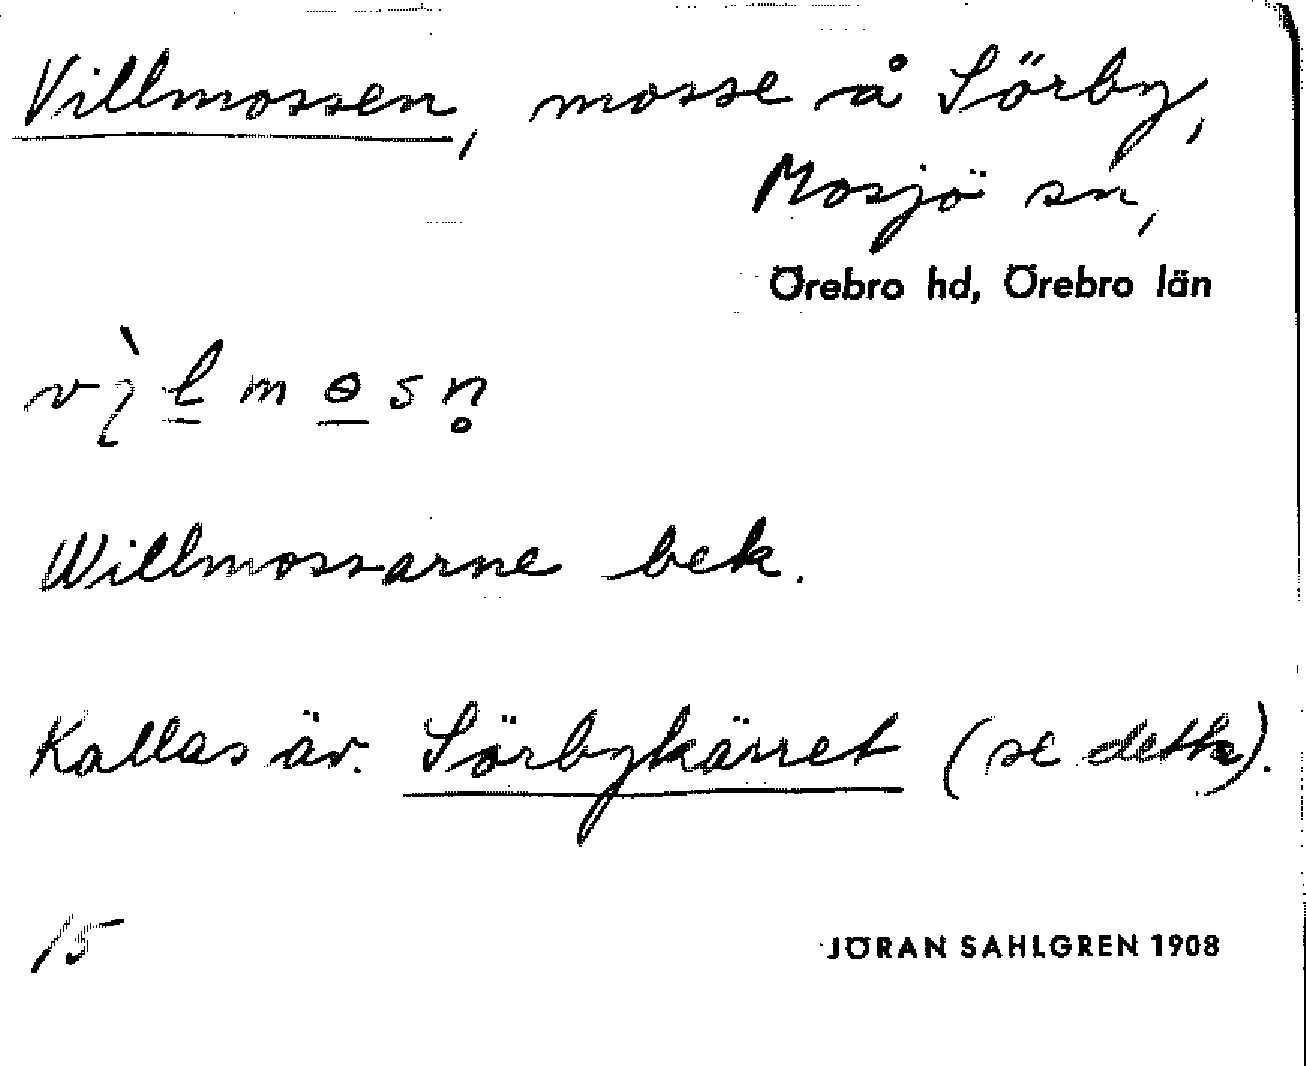 Villmossen, mosse å Sörby,
Mosjö sn,
Örebro hd, Örebro län
Willmossarne bek.
Kallas äv. Sörbykärret (se detta).
15
JÖRAN SAHLGREN 1908